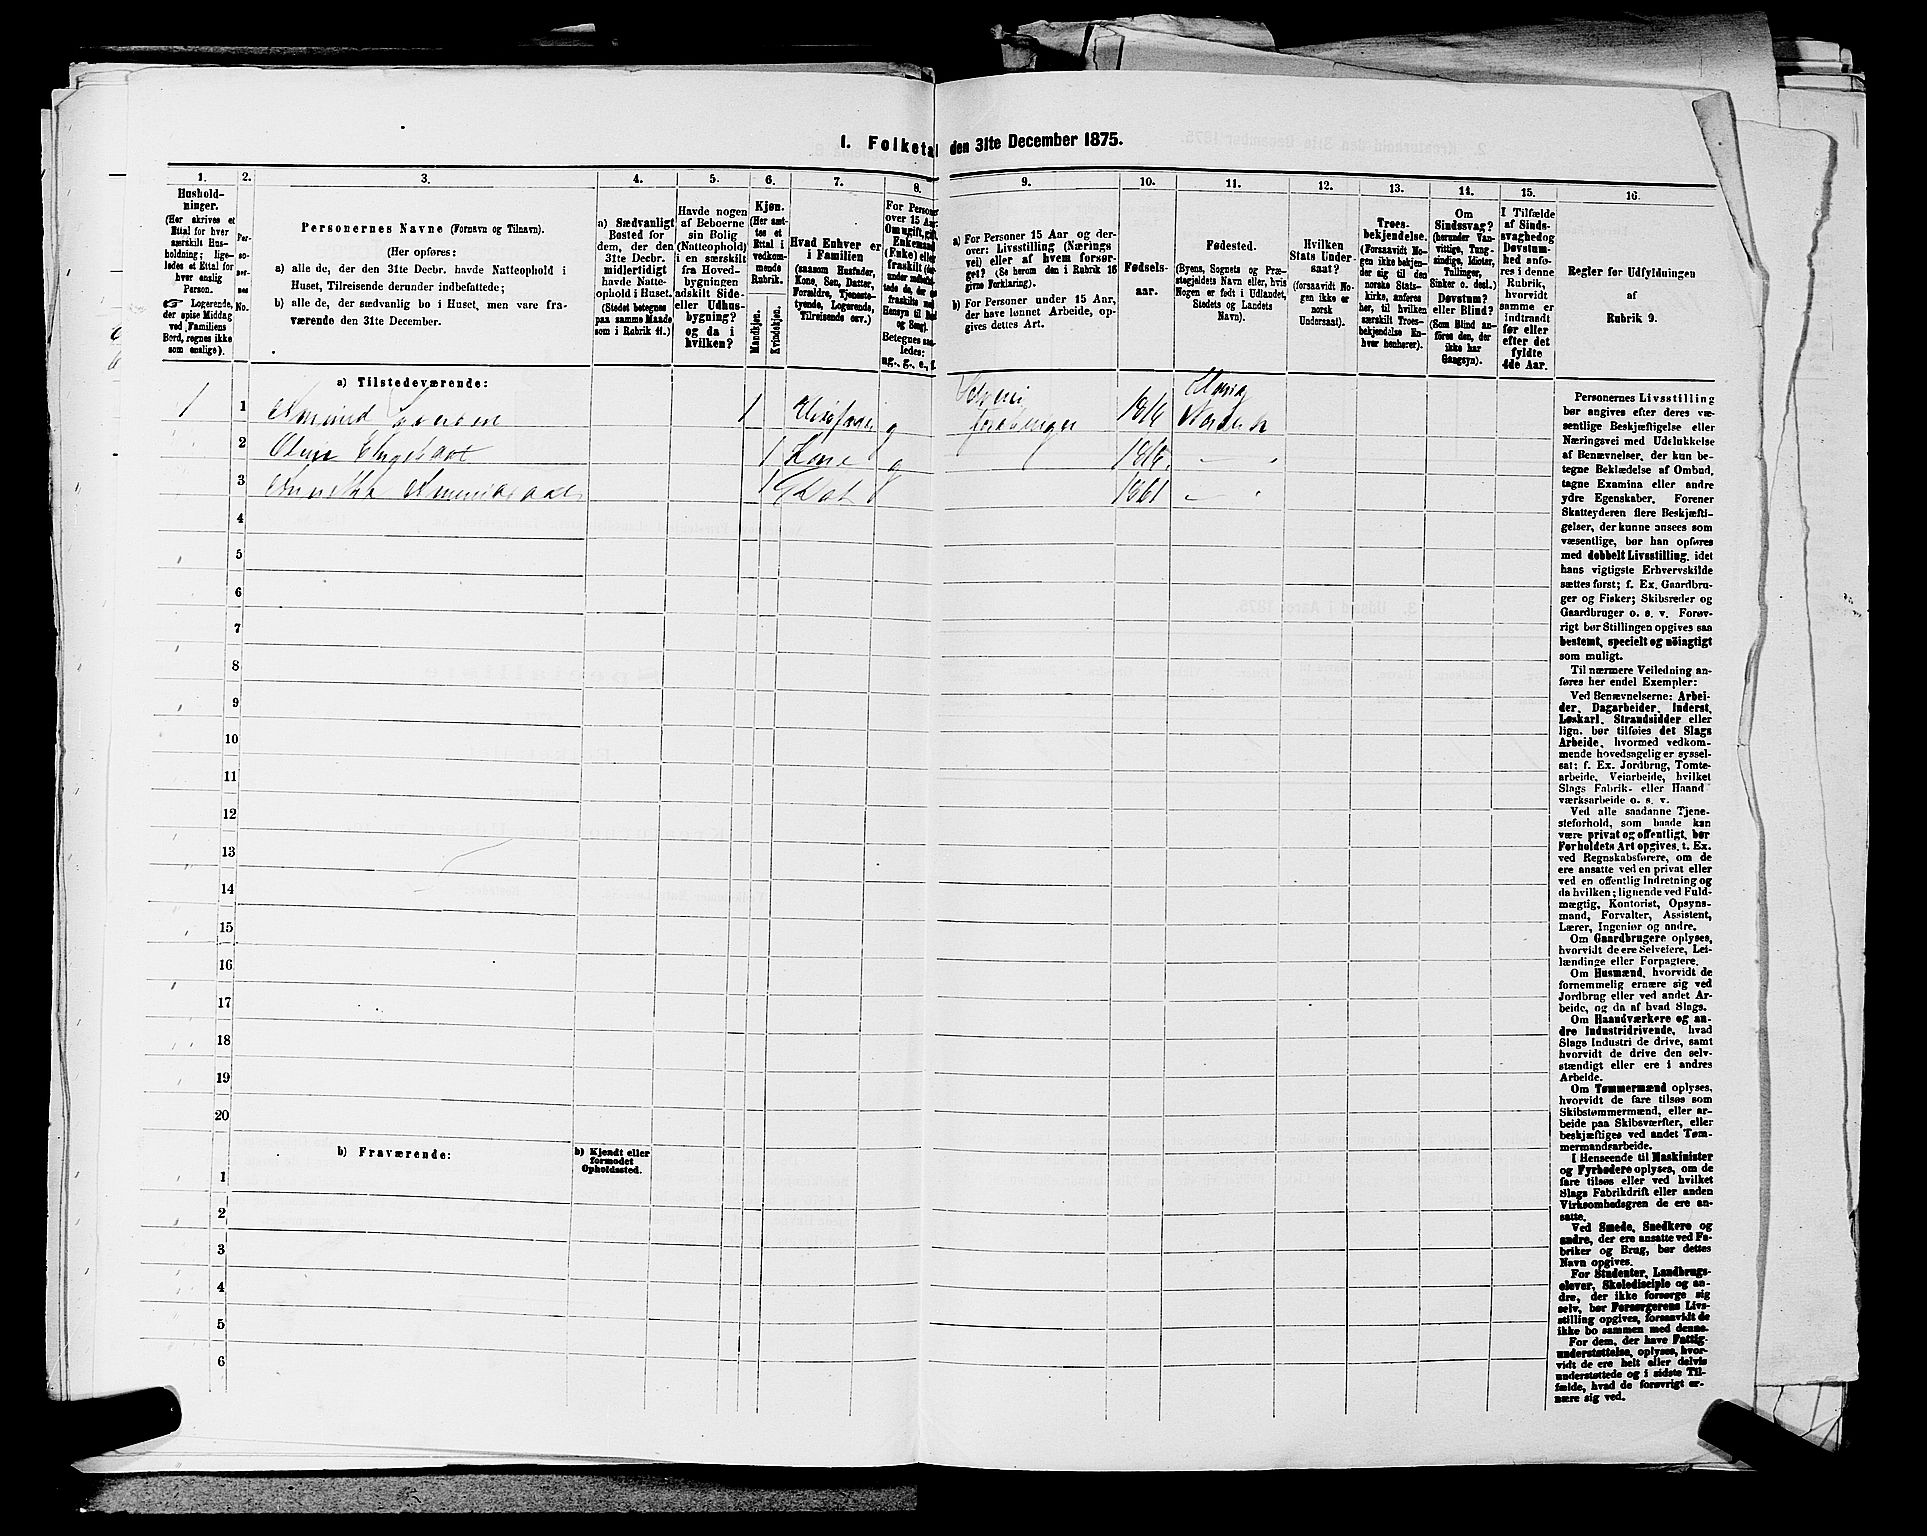 1. Folketal den 31te December 1875.
1. 2. 3. 4. 5. 6. 7. 8. 9. 10. 11. 12. 13. 14. 15. 16.
Hushold-
ninger.
(Her skrives et
Ettal for hver
særskilt Hus-
holdning; lige-
ledes et Ettal for
hver enslig
Person.
☞ Logerende,
der spise Middag
ved Familiens
Bord, regnes ikke
som enslige).
Per-
so-
ner-
nes
No.
Personernes Navne (Fornavn og Tilnavn).
(Her opføres:
a) alle de, der den 31te Decbr. havde Natteophold i
Huset, Tilreisende derunder indbefattede;
b) alle de, der sædvanlig bo i Huset, men vare fra-
værende den 31te December.
a) Sædvanligt
Bosted for
dem, der den
31te Decbr.
midlertidigt
havde Natte-
ophold i Huset.
(Stedet betegnes
paa samme Maade
som i Rubrik 11.)
Havde nogen
af Beboerne
sin Bolig
(Natteophold)
i en særskilt
fra Hoved-
bygningen
adskilt Side-
eller Udhus-
bygning?
og da i
hvilken?
Kjøn.
(Her sæt-
tes et
Ettal i
vedkom-
mende
Rubrik.
Mandkjøn.
Kvindekjøn.
Hvad Enhver er
i Familien
(saasom Husfader,
Kone, Søn, Datter,
Forældre, Tjeneste-
tyende, Logerende,
Tilreisende osv.)
For Personer
over 15 Aar:
Om ugift, gift,
Enkemand
(Enke) eller
fraskilt
Betegnes saa-
ledes:
ug., g., e., f.
a) For Personer 15 Aar og der-
over: Livsstilling (Nærings
vei) eller af hvem forsør-
get? (Se herom den i Rubrik 16
givne Forklaring).
b) For Personer under 15 Aar,
der have lønnet Arbeide, op-
gives dettes Art.
Fødsels-
aar.
Fødested.
(Byens, Sognets og Præ-
stegjeldets Navn eller, hvis
Nogen er født i Udlandet,
Stedets og Landets
Navn).
Hvilken
Stats Under-
saat?
(forsaavidt No-
gen ikke er
norsk
Undersaat).
Troes-
bekjendelse.
(Forsaavidt No-
gen ikke bekjen-
der sig til den
norske Stats-
kirke, anføres
her, til hvilken
særskilt Troes-
bekjendelse En-
hver henhører).
Om
Sindssvag?
(herunder Van-
vittige, Tung-
sindige, Idioter,
Tullinger,
Sinker o. desl.)
Døvstum?
eller Blind?
(Som Blind an-
føres den, der
ikke har
Gangsyn).
I Tilfælde
af Sinds-
svaghed og
Døvstum-
hed anfø-
res i denne
Rubrik,
hvorvidt
samme er
indtraadt
før eller
efter det
fyldte
4de Aar.
Regler for Udfyldningen
af
Rubrik 9.
a) Tilstedeværende:
1 1 1 g 1816
2 1 Kone g
3 1 Dat 1861
4
5
6
7
8
9
10
11
12
13
14
15
16
17
18
19
20
b) Fraværende:
b) Kjendt eller
formodet
Opholdssted.
1
2
3
4
5
6
Personernes Livsstilling
bør angives efter deres væ-
sentlige Beskjæftigelse eller
Næringsvei med Udelukkelse
af Benævnelser, der kun be-
tegne Beklædelse af Ombud,
tagne Examina eller andre
ydre Egenskaber. Forener
Skatteyderen flere Beskjæfti-
gelser, der kunne ansees som
væsentlige, bør han opføres
med dobbelt Livsstilling, idet
hans vigtigste Erhvervskilde
sættes først; f. Ex. Gaardbru-
ger og Fisker; Skibsreder og
Gaardbruger o. s. v. Forøv-
rigt bør Stillingen opgives saa
bestemt, specielt og nöiagtigt
som muligt.
Til nærmere Veiledning an-
føres her endel Exempler:
Ved Benævnelserne: Arbei-
der, Dagarbeider, Inderst,
Løskarl, Strandsidder eller
lign. bør tilføies det Slags
Arbeide, hvormed vedkom-
mende hovedsagelig er syssel-
sat; f. Ex. Jordbrug, Tomte-
arbeide, Veiarbeide, hvilket
Slags Fabrik- eller Haand
værksarbeide o. s. v.
Ved alle saadanne Tjene-
steforhold, som baade kan
være privat og offentligt, bør
Forholdets Art opgives, t. Ex.
ved Regnskabsførere, om de
ere ansatte ved en privat eller
ved en offentlig Indretning og
da hvilken; lignende ved Fuld-
mægtig, Kontorist, Opsyns-
mand, Forvalter, Assistent,
Lærer, Ingeniør og andre.
Om Gaardbrugere oplyses,
hvorvidt de ere Selveiere, Lei-
lændinge eller Forpagtere.
Om Husmænd, hvorvidt de
fornemmelig ernære sig ved
Jordbrug eller ved andet Ar-
beide, og da af hvad Slags.
Om Haandværkere og an-
dre Industridrivende, hvad
Slags Industri de drive, samt
hvorvidt de drive den selv-
stændigt eller ere i andres
Arbeide.
Om Tømmermænd oplyses,
hvorvidt de fare tilsøs som
Skibstømmermænd, eller ar-
beide paa Skibsværfter, eller
beskjæftiges ved andet Tøm-
mermandsarbeide.
I Henseende til Maskinister
og Fyrbødere oplyses, om de
fare tilsøs eller ved hvilket
Slags Fabrikdrift eller anden
Virksomhedsgren de ere an-
satte.
Ved Smede, Snedkere og
andre, der ere ansatte ved Fa-
briker og Brug, bør dettes
Navn opgives.
For Studenter, Landbrugs-
elever, Skoledisciple og an-
dre, der ikke forsørge sig
selv, bør Forsørgerens Livs-
stilling opgives, forsaavidt de
ikke bo sammen med denne.
For dem, der have Fattig-
understøttelse, oplyses, hvor-
vidt de ere helt eller delvis
understøttede og i sidste Til-
fælde, hvad de forøvrigt er-
nære sig ved.